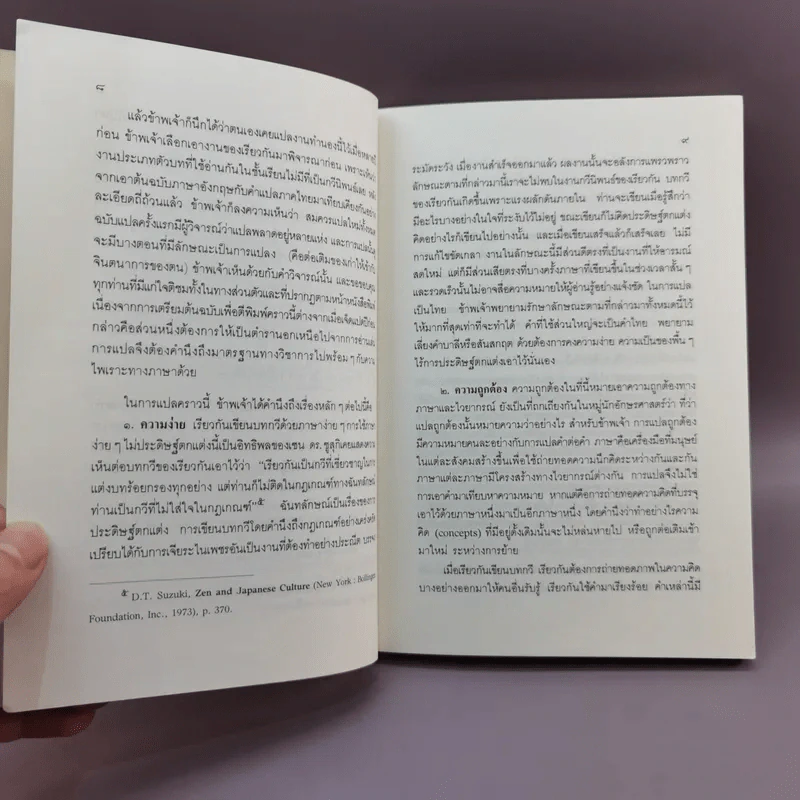 ๘
แล้วข้าพเจ้าก็นึกได้ว่าตนเองเคยแปลงงานทำนองนี้ไว้เมื่อหลายปี
ก่อน ข้าพเจ้าเลือกเอางานของเรียวกันมาพิจารณาก่อน เพราะเห็นว่า
งานประเภทตัวบทที่ใช้อ่านกันในชั้นเรียนไม่มีที่เป็นกวีนิพนธ์เลย
จากเอาต้นฉบับภาษาอังกฤษกับคำแปลภาคไทยมาเทียบเคียงกันอย่าง
ละเอียดถี่ถ้วนแล้ว ข้าพเจ้าก็ลงความเห็นว่า สมควรแปลใหม่ทั้งหมด
ฉบับแปลครั้งแรกมีผู้วิจารณ์ว่าแปลพลาดอยู่หลายแห่ง และการแปลนั้น
จะมีบางตอนที่มีลักษณะเป็นการแปลง (คือต่อเติมของเก่าให้เข้ากับ
จินตนาการของตน) ข้าพเจ้าเห็นด้วยกับคำวิจารณ์นั้น และขอขอบคุณ
ทุกท่านที่มีแก่ใจติชมทั้งในทางส่วนตัวและที่ปรากฏตามหน้าหนังสือพิมพ์
เนื่องจากการเตรียมต้นฉบับเพื่อตีพิมพ์คราวนี้ต่างจากเมื่อเจ็ดแปดปีก่อน
กล่าวคือส่วนหนึ่งต้องการให้เป็นตำรานอกเหนือไปจากการอ่านเล่น
การแปลจึงต้องคำนึงถึงมาตรฐานทางวิชาการไปพร้อม ๆ กับความ
ไพเราะทางภาษาด้วย
ในการแปลคราวนี้ ข้าพเจ้าได้คำนึงถึงเรื่องหลัก ๆ ต่อไปนี้คือ
๑. ความง่าย เรียวกันเขียนบทกวีด้วยภาษาง่าย ๆ การใช้ภาษา
ง่าย ๆ ไม่ประดิษฐ์ตกแต่งนี้เป็นอิทธิพลของเซน ดร.ซูสุกิเคยแสดงความ
เห็นต่อบทกวีของเรียวกันเอาไว้ว่า “เรียวกันเป็นกวีที่เชี่ยวชาญในการ
แต่งบทร้อยกรองทุกอย่าง แต่ท่านก็ไม่ติดในกฎเกณฑ์ทางฉันทลักษณ์
ท่านเป็นกวีที่ไม่ใส่ใจในกฎเกณฑ์”๕ ฉันทลักษณ์เป็นเรื่องของการ
ประดิษฐ์ตกแต่ง การเขียนบทกวีโดยคำนึงถึงกฎเกณฑ์อย่างเคร่งครัด
เปรียบได้กับการเจียระไนเพชรอันเป็นงานที่ต้องทำอย่างประณีต บรรจง
๕ D.T. Suzuki, Zen and Japanese Culture (New York : Bollingen
Foundation, Inc., 1973), p. 370.
๙
ระมัดระวัง เมื่องานสำเร็จออกมาแล้ว ผลงานนั้นจะอลังการแพรวพราว
ลักษณะตามที่กล่าวมานี้เราจะไม่พบในงานกวีนิพนธ์ของเรียวกัน บทกวี
ของเรียวกันเกิดขึ้นเพราะแรงผลักดันภายใน ท่านจะเขียนเมื่อรู้สึกว่า
มีอะไรบางอย่างในใจที่ระงับไว้ไม่อยู่ ขณะเขียนก็ไม่คิดประดิษฐ์ตกแต่ง
คิดอย่างไรก็เขียนไปอย่างนั้น และเมื่อเขียนเสร็จแล้วก็เสร็จเลย ไม่มี
การแก้ไขขัดเกลา งานในลักษณะนี้มีส่วนดีตรงที่เป็นงานที่ให้อารมณ์
สดใหม่ แต่ก็มีส่วนเสียตรงที่บางครั้งภาษาที่เขียนขึ้นในช่วงเวลาสั้น ๆ
และรวดเร็วนั้นไม่อาจสื่อความหมายให้ผู้อ่านรู้อย่างแจ้งชัด ในการแปล
เป็นไทย ข้าพเจ้าพยายามรักษาลักษณะตามที่กล่าวมาทั้งหมดนี้ไว้
ให้มากที่สุดเท่าที่จะทำได้ คำที่ใช้ส่วนใหญ่จะเป็นคำไทย พยายาม
เลี่ยงคำบาลีหรือสันสกฤต ด้วยต้องการคงความง่าย ความเป็นของพื้น ๆ
ไร้การประดิษฐ์ตกแต่งเอาไว้นั่นเอง
๒. ความถูกต้อง ความถูกต้องในที่นี้หมายเอาความถูกต้องทาง
ภาษาและไวยากรณ์ ยังเป็นที่ถกเถียงกันในหมู่นักอักษรศาสตร์ว่า ที่ว่า
แปลถูกต้องนั้นหมายความว่าอย่างไร สำหรับข้าพเจ้า การแปลถูกต้อง
มีความหมายคนละอย่างกับการแปลคำต่อคำ ภาษาคือเครื่องมือที่มนุษย์
ในแต่ละสังคมสร้างขึ้นเพื่อใช้ถ่ายทอดความนึกคิดระหว่างกันและกัน
ภาษาแต่ละภาษามีโครงสร้างทางไวยากรณ์ต่างกัน การแปลจึงไม่ใช่
การเอาคำมาเทียบหาความหมาย หากแต่คือการถ่ายทอดความคิดที่บรรจุ
เอาไว้ด้วยภาษาหนึ่งมาเป็นอีกภาษาหนึ่ง โดยคำนึงว่าทำอย่างไรความ
คิด (concepts) ที่มีอยู่ดั้งเดิมนั้นจะไม่หล่นหายไป หรือถูกต่อเติมเข้า
มาใหม่ ระหว่างการย้าย
เมื่อเรียวกันเขียนบทกวี เรียวกันต้องการถ่ายทอดภาพในความคิด
บางอย่างออกมาให้คนอื่นรับรู้ เรียวกันใช้คำมาเรียงร้อย คำเหล่านี้มี